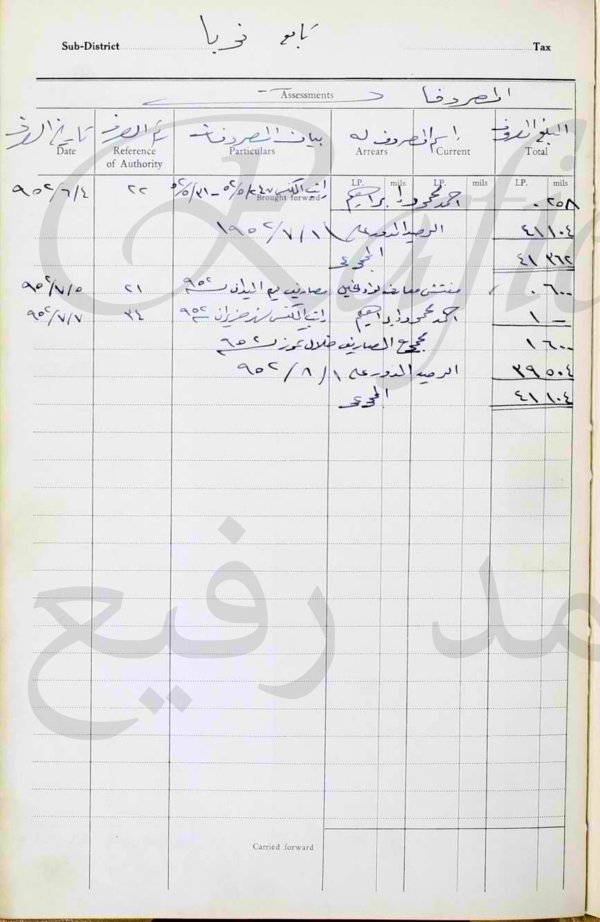 Sub-District تابع نوبا Tax
Assessments المصروفات
تاريخ الصرف Date
Reference of Authority
بيان المصروفات Particulars
اسم المصروف له
Arrears Current
المبلغ المصروف Total
LP. mils LP. mils LP. mils
٩٥٢/٦/٤ ٢٢ راتب Brought forward احمد محمود ابراهيم ٠.٢٥٨
الرصيد المدور على ١٩٥٢/٧/١ ٤١ ١٠٤
المجموع ٤١ ٣٦٢
٩٥٢/٧/٥ ٢١ مصاريف ٩٥٢ مفتش معارف ٠ ٦٠٠
٩٥٢/٧/٧ ٣٤ راتب لشهر حزيران ٩٥٢ احمد محمود ابراهيم ١ -
مجموع المصاريف خلال تموز ٩٥٢ ١ ٦٠٠
الرصيد المدور على ٩٥٢/٨/١ ٣٩ ٥٠٤
المجموع ٤١ ١٠٤
Rafi
مد رفيع
Carried forward